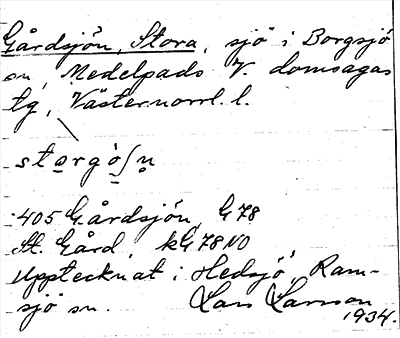 Gårdsjön, Stora, sjö i Borgsjö
sn, Medelpads V. domsagas
tg, Västernorrl. l.
storgò∫n
405 Gårdsjön, G78
St. Gård, kG78NO
Upptecknat i Hedsjö, Ram-
sjö sn. Lars Larsson
1934.